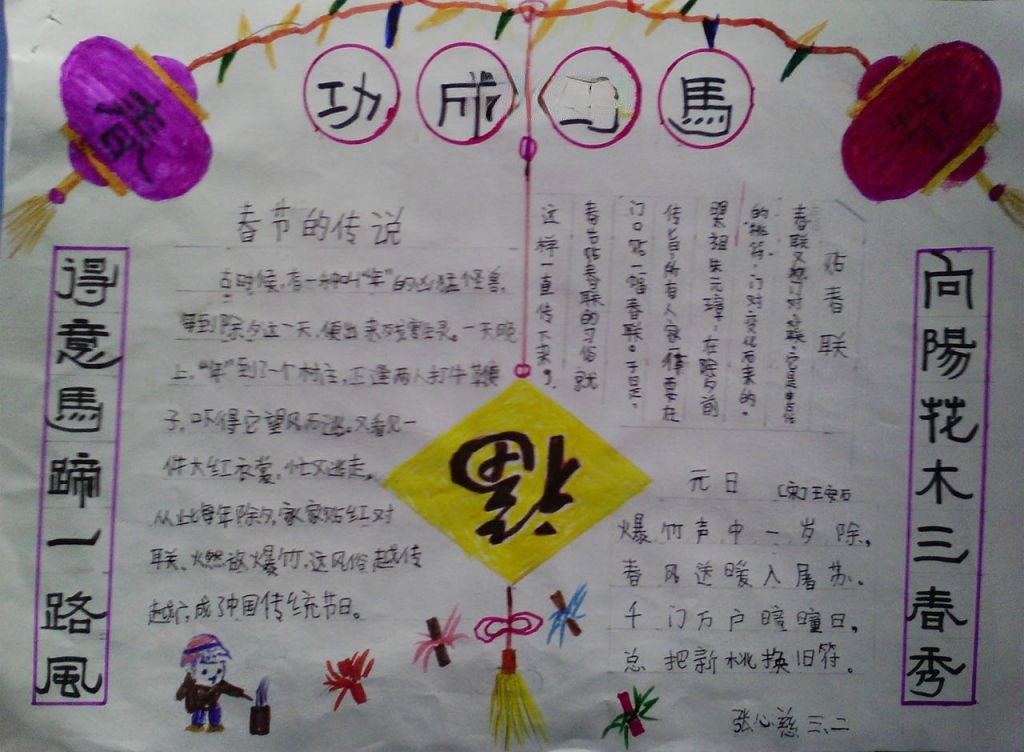 功成馬
春
春节的传说
古时候,有一种叫“年”的凶猛怪兽,
每到除夕这一天,便出来残害生灵。一天晚
上,“年”到了一个村庄,正逢两人打牛鞭
子,吓得它望风而逃。又看见一
件大红衣裳,忙又逃走。
从此每年除夕,家家贴红对
联、燃放爆竹,这风俗越传
越广,成了中国传统节日。
得意馬蹄一路風
向陽花木三春秀
贴春联
春联又称门对、对联,它是由古代
的桃符,门对变化而来的。
朱元璋,在除夕前
传旨:所有人家一律要在
门口贴一幅春联。于是,
春节贴春联的习俗就
这样一直传下来了。
福
元日 (宋)王安石
爆竹声中一岁除,
春风送暖入屠苏。
千门万户曈曈日,
总把新桃换旧符。
张心慈 三、二